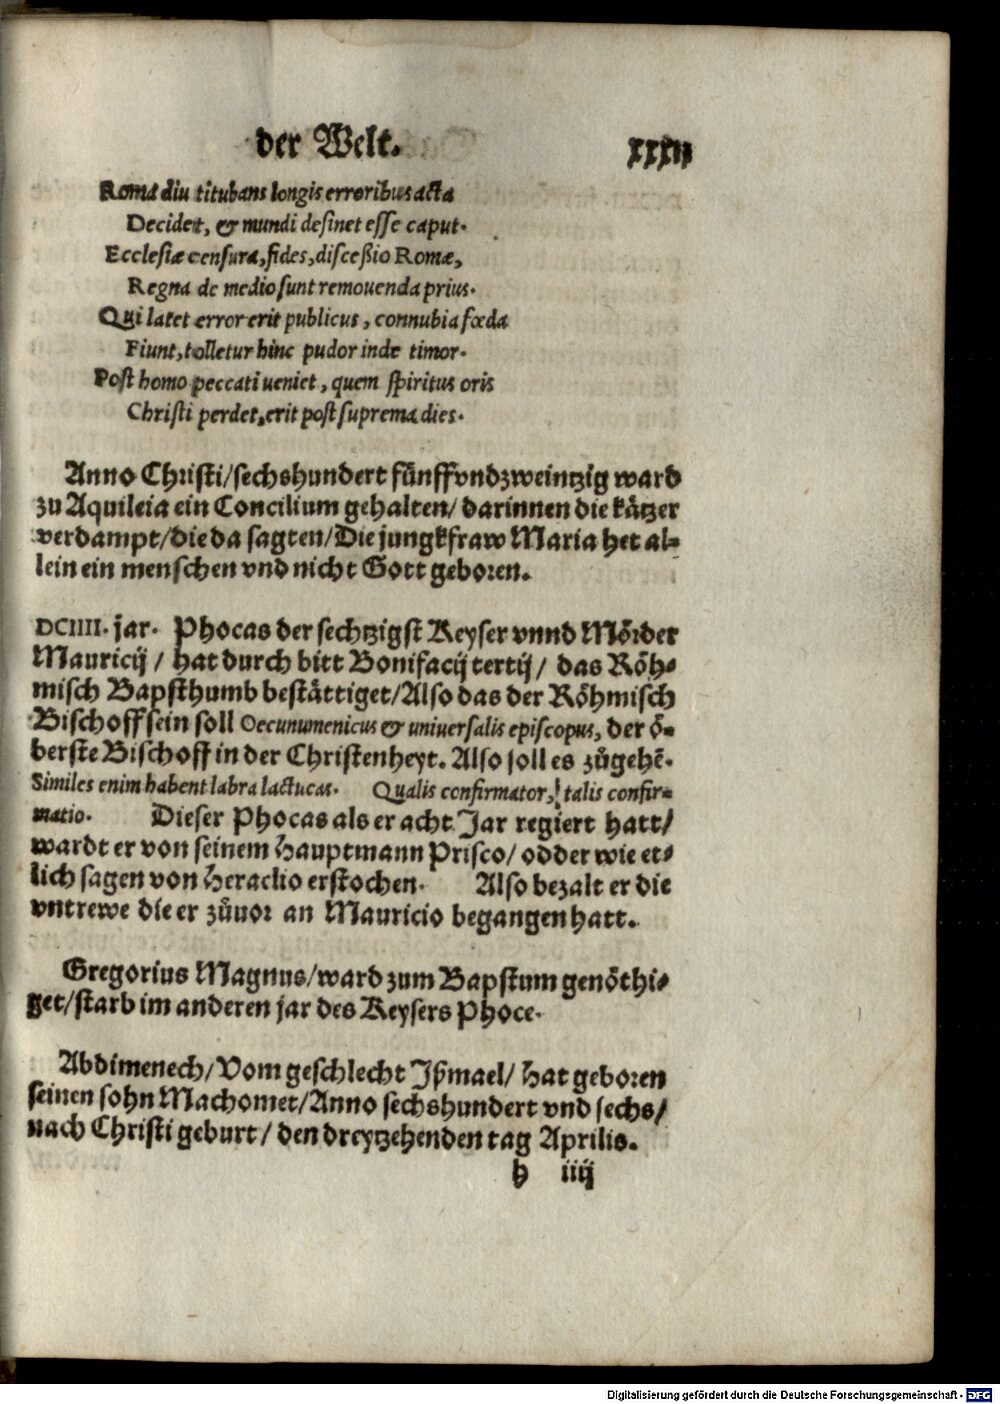 der Welt. xxxii
Roma diu titubans longis erroribus acta
Decidet, & mundi desinet esse caput.
Ecclesiæ censura, fides, disceßio Romæ,
Regna de medio sunt remouenda prius.
Qui latet error erit publicus, connubia fœda
Fiunt, tolletur hinc pudor inde timor.
Post homo peccati ueniet, quem spiritus oris
Christi perdet, erit post suprema dies.
Anno Christi/sechshundert fünffvndzweintzig ward
zu Aquileia ein Concilium gehalten/ darinnen die kätzer
verdampt/die da sagten/Die jungkfraw Maria het al-
lein ein menschen vnd nicht Gott geboren.
DCIIII. jar. Phocas der sechtzigst Keyser vnnd Mörder
Mauricij / hat durch bitt Bonifacij tertij/ das Röh-
misch Bapsthumb bestättiget/Also das der Röhmisch
Bischoff sein soll Oecunumenicus & uniuersalis episcopus, der ö-
berste Bischoff in der Christenheyt. Also soll es zůgehē.
Similes enim habent labra lactucas. Qualis confirmator, talis confir-
matio. Dieser Phocas als er acht Jar regiert hatt/
wardt er von seinem Hauptmann Prisco/ odder wie et-
lich sagen von Heraclio erstochen. Also bezalt er die
vntrewe die er zůuor an Mauricio begangen hatt.
Gregorius Magnus/ward zum Bapstum genöthi-
get/starb im anderen jar des Keysers Phoce.
Abdimenech/Vom geschlecht Jßmael/ hat geboren
seinen sohn Machomet/Anno sechshundert vnd sechs/
nach Christi geburt/ den dreytzehenden tag Aprilis.
h iiij
Digitalisierung gefördert durch die Deutsche Forschungsgemeinschaft - DFG